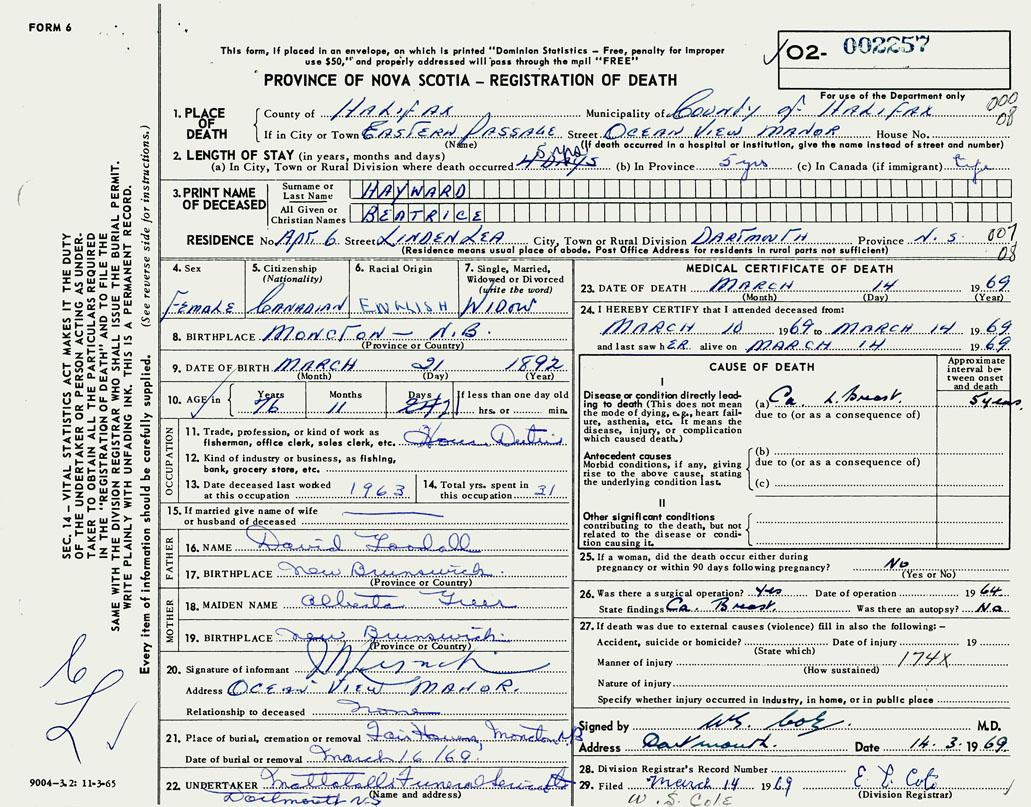 FORM 6
This form, if placed in an envelope, on which is printed "Dominion Statistics – Free, penalty for improper
use $50," and properly addressed will pass through the mail "FREE"
02- 002257
For use of the Department only
PROVINCE OF NOVA SCOTIA – REGISTRATION OF DEATH
1. PLACE OF DEATH
County of HALIFAX Municipality of COUNTY OF HALIFAX 000
If in City or Town EASTERN PASSAGE Street OCEAN VIEW MANOR House No. 08
(Name) (If death occurred in a hospital or institution, give the name instead of street and number)
2. LENGTH OF STAY (in years, months and days)
(a) In City, Town or Rural Division where death occurred 5 yrs 4 DAYS (b) In Province 5 yrs (c) In Canada (if immigrant) Life
3. PRINT NAME OF DECEASED
Surname or Last Name HAYWARD
All Given or Christian Names BEATRICE
RESIDENCE No. APT. 6 Street LINDEN LEA City, Town or Rural Division DARTMOUTH Province N. S. 007
(Residence means usual place of abode. Post Office Address for residents in rural parts not sufficient) 08
4. Sex FEMALE
5. Citizenship (Nationality) CANADIAN
6. Racial Origin ENGLISH
7. Single, Married, Widowed or Divorced (write the word) WIDOW
8. BIRTHPLACE MONCTON – N.B.
(Province or Country)
9. DATE OF BIRTH MARCH 21 1892
(Month) (Day) (Year)
10. AGE in Years 76 Months 11 Days If less than one day old hrs. or min.
OCCUPATION
11. Trade, profession, or kind of work as fisherman, office clerk, sales clerk, etc. House Duties
12. Kind of industry or business, as fishing, bank, grocery store, etc.
13. Date deceased last worked at this occupation 1963
14. Total yrs. spent in this occupation 31
15. If married give name of wife or husband of deceased
FATHER
16. NAME David Goodall
17. BIRTHPLACE New Brunswick
(Province or Country)
MOTHER
18. MAIDEN NAME Alberta Greer
19. BIRTHPLACE New Brunswick
(Province or Country)
20. Signature of informant
Address OCEAN VIEW MANOR.
Relationship to deceased None
21. Place of burial, cremation or removal Fair Haven, Moncton NB
Date of burial or removal March 16/69.
22. UNDERTAKER Mattatalls Funeral Service
(Name and address)
Dartmouth N.S
MEDICAL CERTIFICATE OF DEATH
23. DATE OF DEATH MARCH 14 1969
(Month) (Day) (Year)
24. I HEREBY CERTIFY that I attended deceased from:
MARCH 10 1969 to MARCH 14 1969
and last saw hER alive on MARCH 14 1969.
CAUSE OF DEATH
Approximate interval between onset and death
I
Disease or condition directly leading to death (This does not mean the mode of dying, e.g., heart failure, asthenia, etc. It means the disease, injury, or complication which caused death.)
(a) Ca. L. Breast. 5 years.
due to (or as a consequence of)
Antecedent causes
Morbid conditions, if any, giving rise to the above cause, stating the underlying condition last.
(b)
due to (or as a consequence of)
(c)
II
Other significant conditions
contributing to the death, but not related to the disease or condition causing it.
25. If a woman, did the death occur either during pregnancy or within 90 days following pregnancy? No
(Yes or No)
26. Was there a surgical operation? Yes Date of operation 1964
State findings Ca. Breast. Was there an autopsy? No
27. If death was due to external causes (violence) fill in also the following: –
Accident, suicide or homicide? Date of injury 19
(State which)
Manner of injury 174X
(How sustained)
Nature of injury
Specify whether injury occurred in industry, in home, or in public place
Signed by M.D.
Address Dartmouth. Date 14. 3. 1969.
28. Division Registrar's Record Number
29. Filed March 14 1969
(Division Registrar)
W. S. COLE
SEC. 14 – VITAL STATISTICS ACT MAKES IT THE DUTY
OF THE UNDERTAKER OR PERSON ACTING AS UNDER-
TAKER TO OBTAIN ALL THE PARTICULARS REQUIRED
IN THE "REGISTRATION OF DEATH" AND TO FILE THE
SAME WITH THE DIVISION REGISTRAR WHO SHALL ISSUE THE BURIAL PERMIT.
WRITE PLAINLY WITH UNFADING INK. THIS IS A PERMANENT RECORD.
Every item of information should be carefully supplied. (See reverse side for instructions.)
9004-3.2: 11-3-65